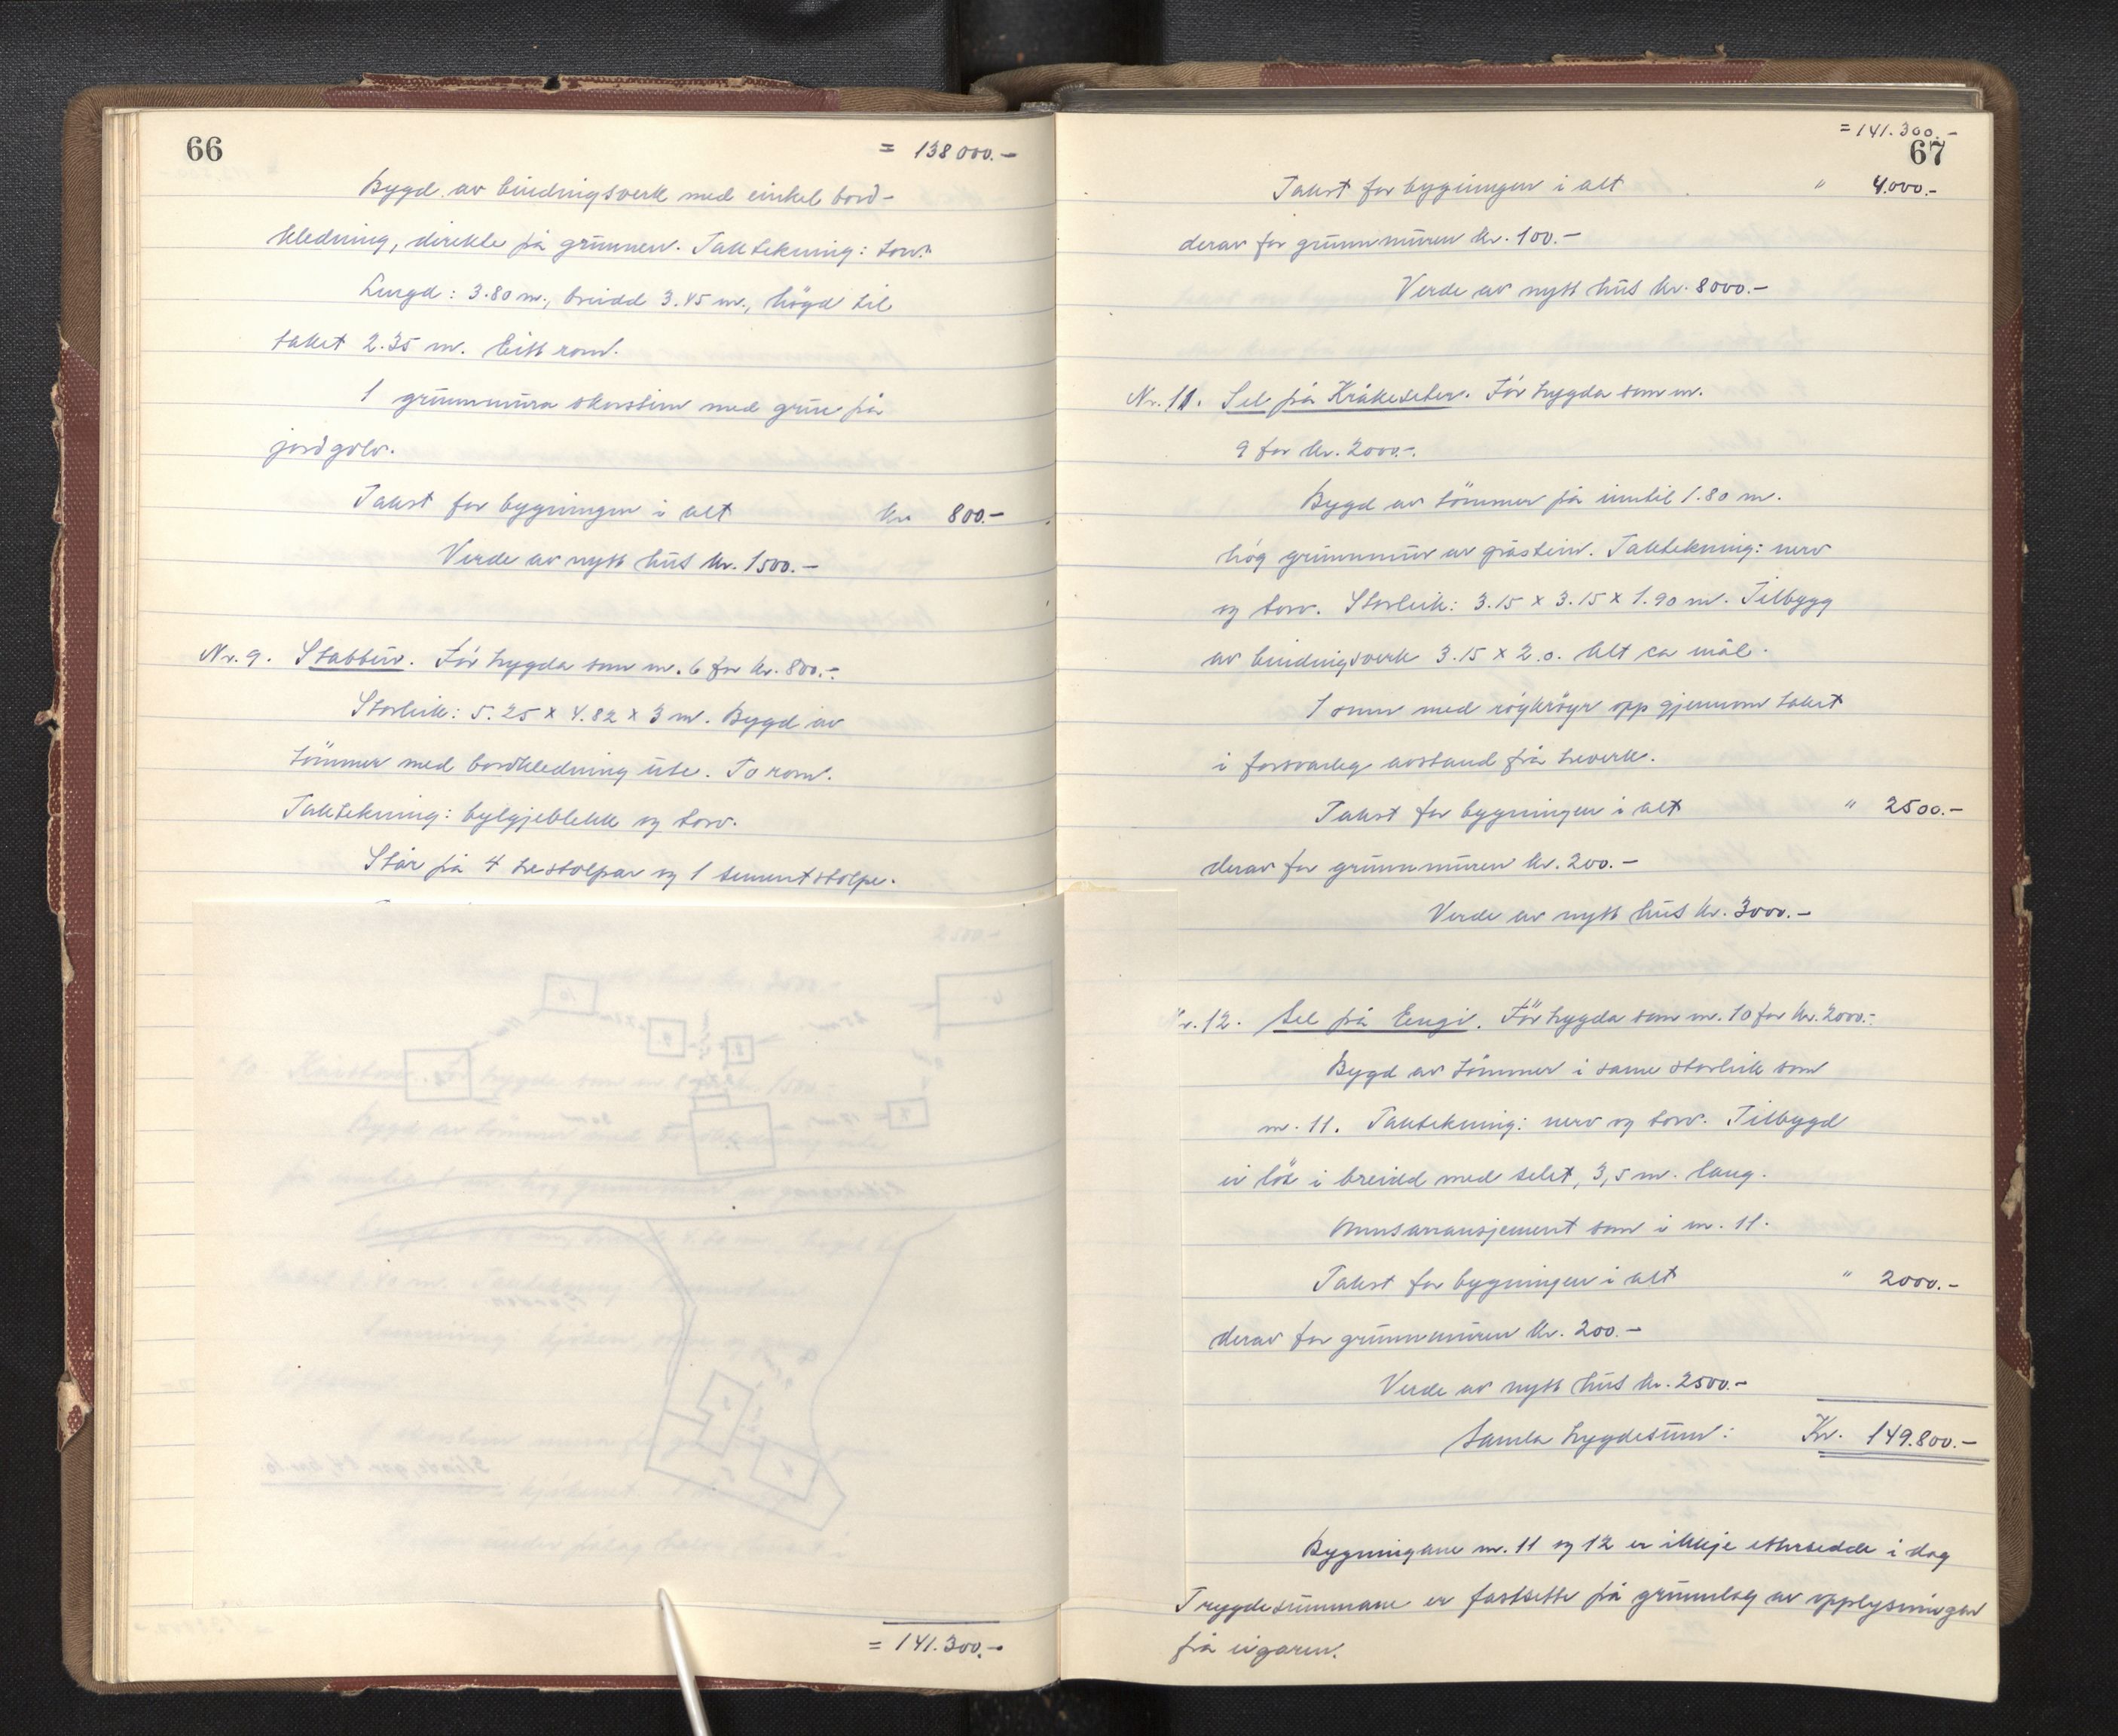 66
= 138 000.-
Bygd av bindingsverk med einkel bord-
kledning, direkte på grunnen. Taktekning: torv.
Lengd: 3.80 m., breidd 3.45 m., högd til
taket 2.35 m. Eitt rom.
1 grunnmura skorstein med grue på
jordgolv.
Takst for bygningen i alt kr. 800.-
Verde av nytt hus kr. 1500.-
Nr. 9. Stabbur. För trygda som nr. 6 for kr. 800.-.
Storleik: 5.25 x 4.82 x 3 m. Bygd av
tömmer med bordkledning ute. To rom.
Taktekning: bylgjeblekk og torv.
Står på 4 trestolpar og 1 sementstolpe.
= 141.300.-
= 141.300.-
67
Takst for bygningen i alt " 4.000.-
derav for grunnmuren kr. 100.-
Verde av nytt hus kr. 8000.-
Nr. 11. Sel på Kråkeseter. För trygda som nr.
9 for kr. 2000.-.
Bygd av tömmer på inntil 1.80 m.
hög grunnmur av gråstein. Taktekning: nerv
og torv. Storleik: 3.15 x 3.15 x 1.90 m. Tilbygg
av bindingsverk 3.15 x 2.0. Alt ca mål.
1 omn med röykröyr opp gjennom taket
i forsvarleg avstand frå treverk.
Takst for bygningen i alt " 2500.-
derav for grunnmuren kr. 200.-
Verde av nytt hus kr. 3000.-
r. 12. Sel på Engi. För trygda som nr. 10 for kr. 2000.-.
Bygd av tömmer i same storleik som
nr. 11. Taktekning: nerv og torv. Tilbygd
ei löe i breidd med selet, 3,5 m. lang.
Omnsarransjement som i nr. 11.
Takst for bygningen i alt " 2000.-
derav for grunnmuren kr. 200.-
Verde av nytt hus kr. 2500.-
Samla trygdesum: Kr. 149.800.-
Bygningane nr. 11 og 12 er ikkje ettersedde i dag
Trygdesummane er fastsette på grunnlag av opplysningar
frå eigaren.